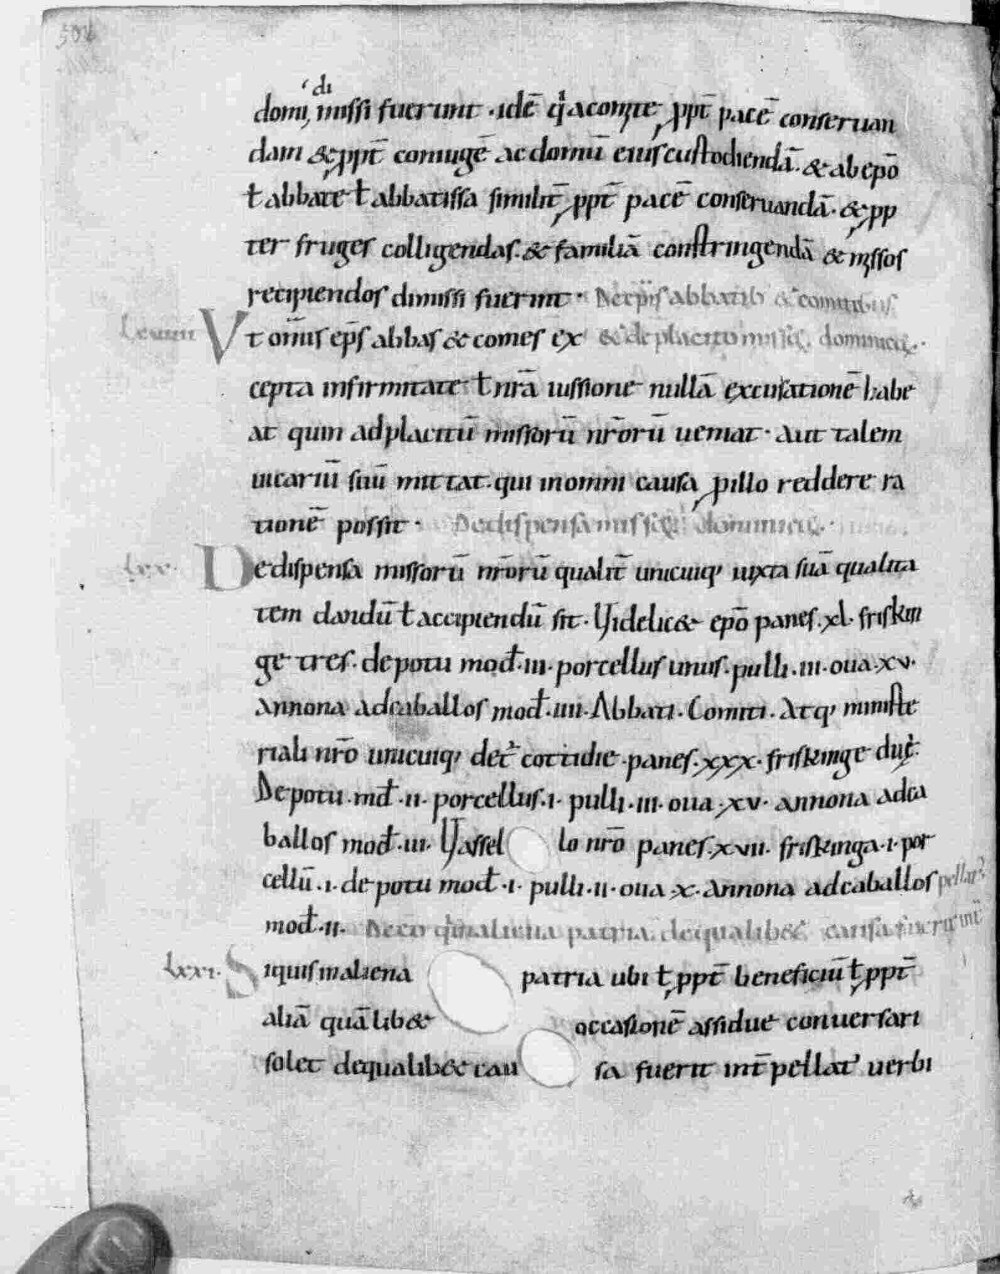 502
domi, ‘di missi fuerunt · idē qͥ a comite ꝓpt̄ pacē conseruan
dam & ꝓpt̄ coniugē ac domū eius custodiendā. & ab ep̄o
ƚ abbate ƚ abbatissa similit̄ ꝓpt̄ pacē conseruandā. & ꝓp
ter fruges colligendas. & familiā constringendā & missos
recipiendos dimissi fuerint · De ep̄is abbatib & comitibus
Lxviiii Vt om̄is ep̄s abbas & comes ex & de placito missoꝝ dominicoꝝ.
cepta infirmitate ƚ nr̄a iussione nullā excusationē habe
at quin ad placitū missorū nr̄orū ueniat · Aut talem
uicariū suū mittat. qui in omni causa ꝓ illo reddere ra
tionē possit · De dispensa missoꝝ dominicoꝝ.
Lxx. De dispensa missorū nr̄orū qualit̄ unicuiq, iuxta suā qualita
tem dandū ƚ accipiendū sit. Videlic& ep̄o panes. xl. friskin
ge tres. de potu mod̄. iii. porcellus unus. pulli. iii. oua. xv.
Annona ad caballos mod̄. iiii. Abbati. Comiti. Atq, ministe
riali nr̄o unicuiq, det̄ cottidie. panes. xxx. friskinge duę.
De potu. md̄. ii. porcellus. i. pulli. iii. oua. xv. annona ad ca
ballos mod̄. iii. Vassallo nr̄o panes. xvii. friskinga. i. por
cellū. i. de potu mod̄. i. pulli. ii. oua x. Annona ad caballos pellat᷒
mod̄. ii. De eo qͥ in aliena patria. de qualib& causa fuerit int̄
Lxxi. Si quis in aliena patria ubi ƚ ꝓpt̄ beneficiū ƚ ꝓpt̄
aliā quālib& occasionē assidue conuersari
solet de qualib& causa fuerit int̄pellat᷒ uerbi